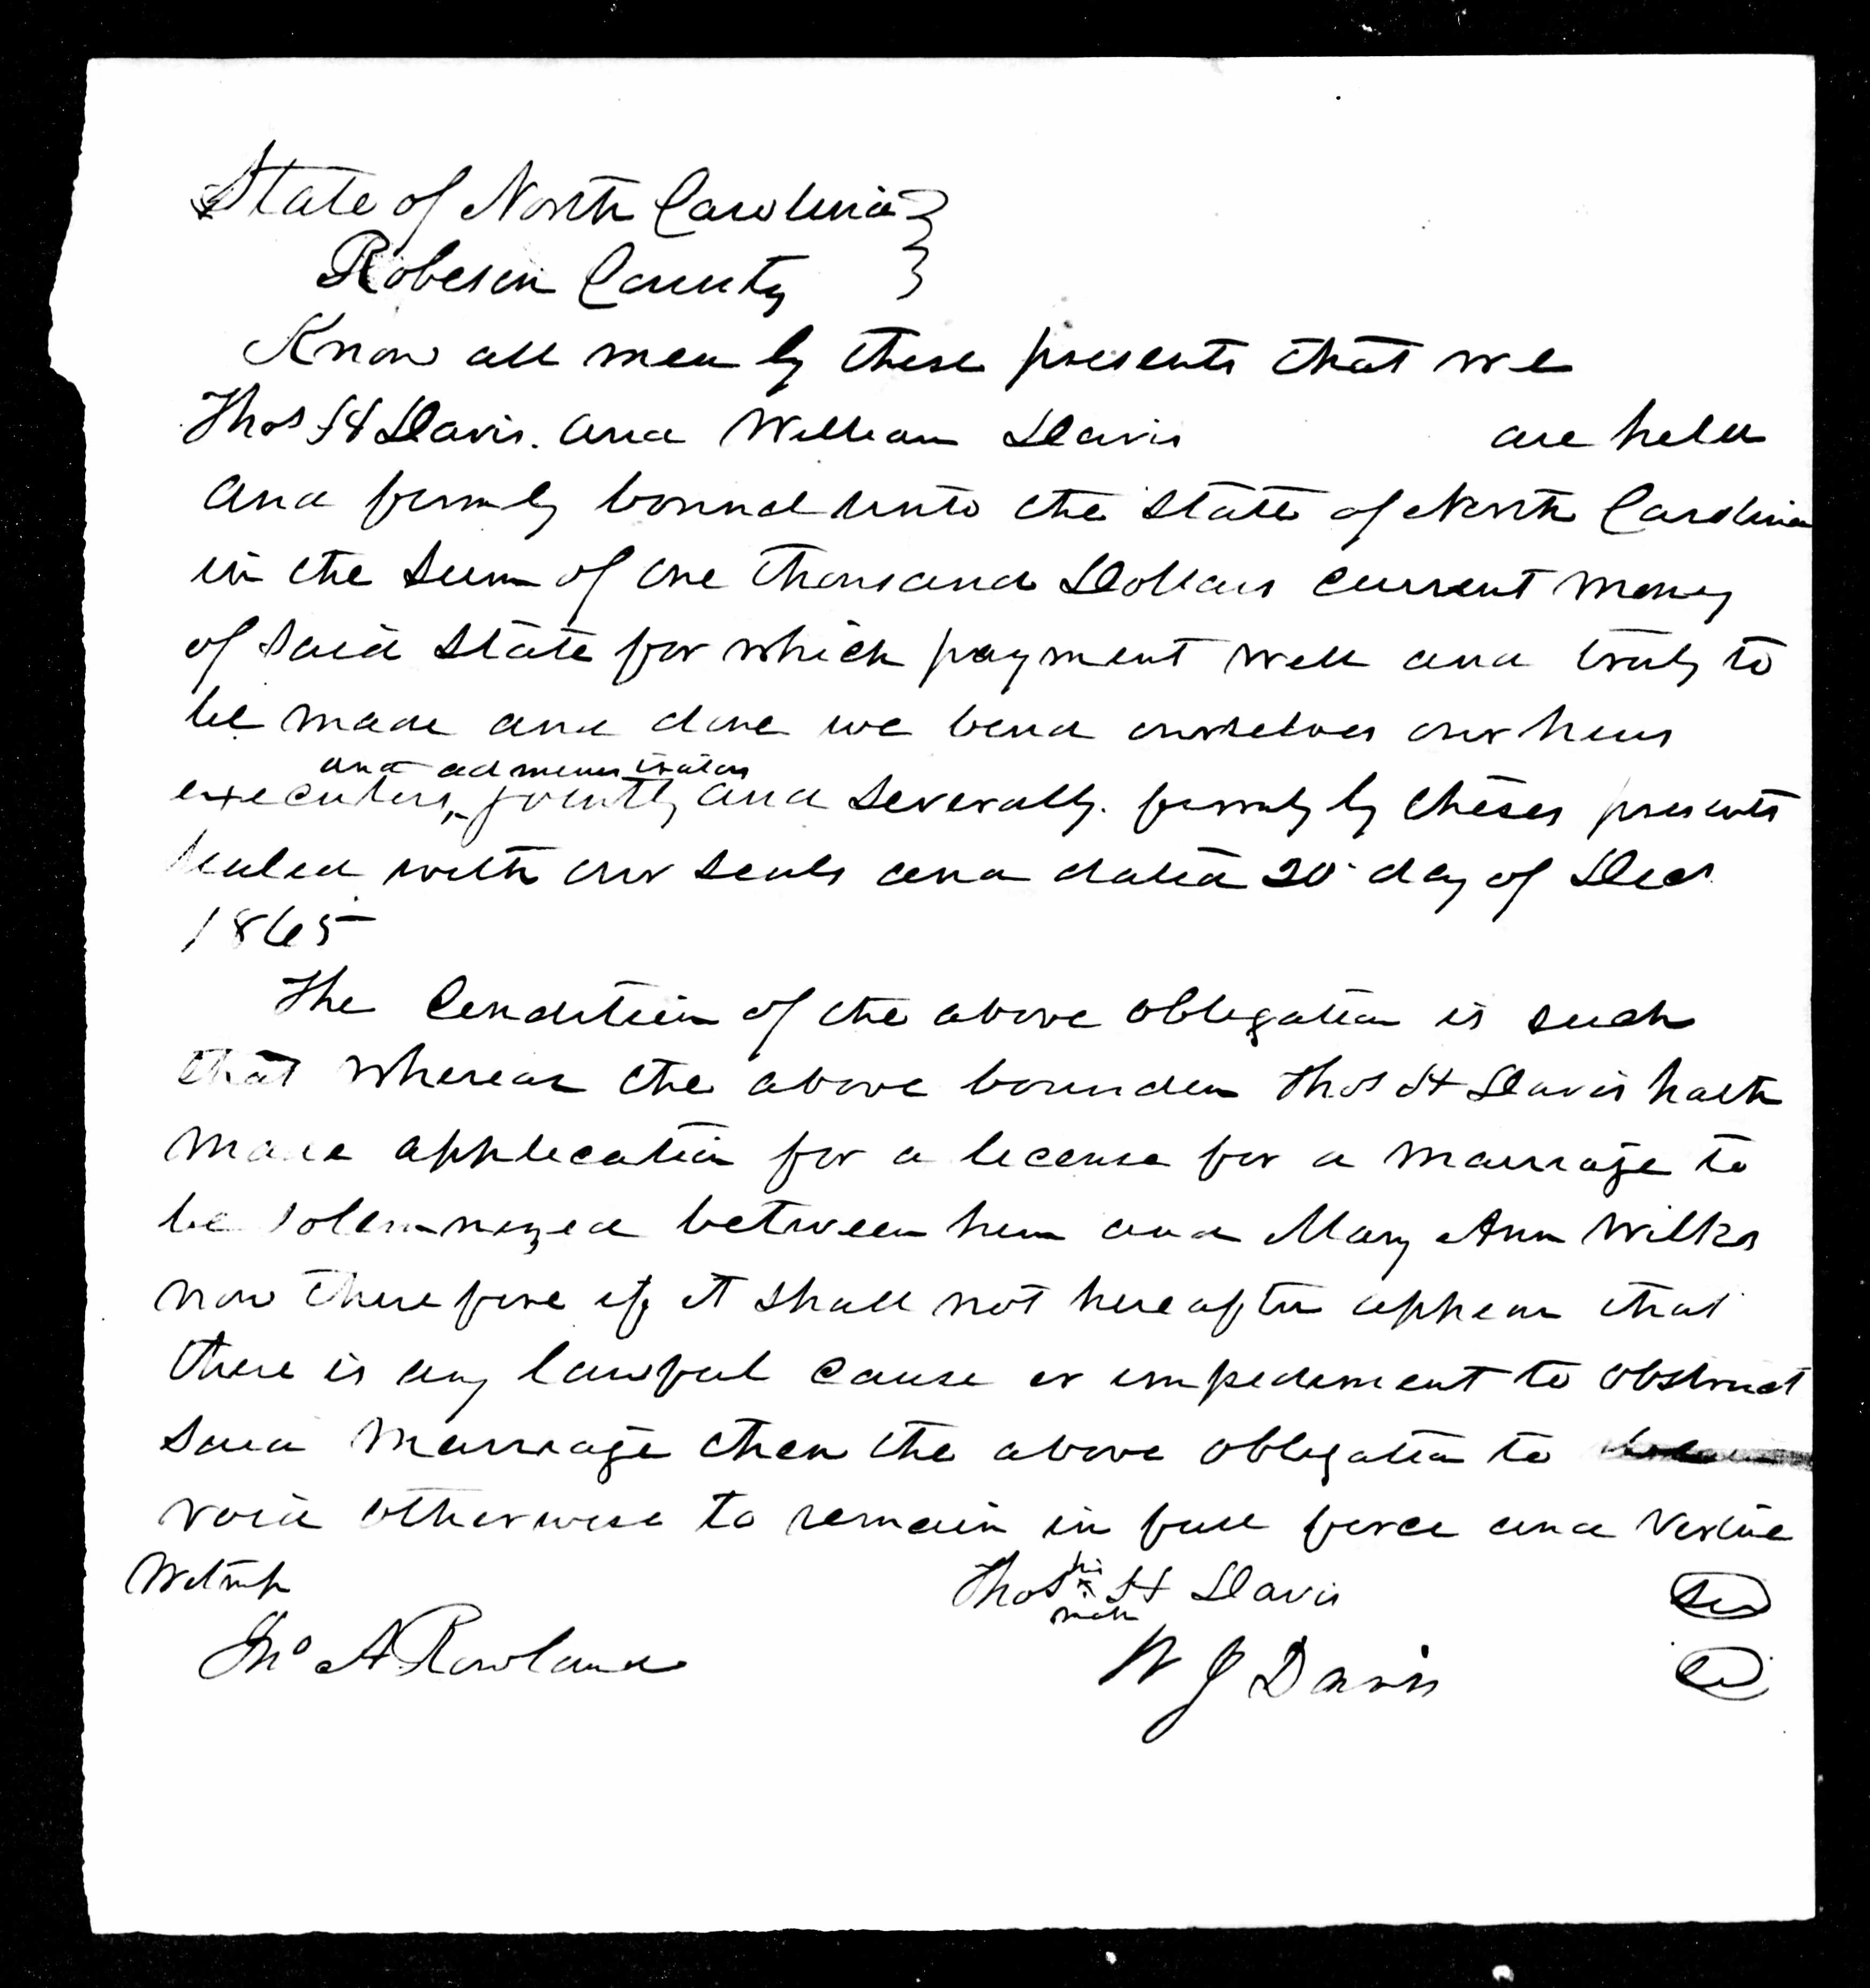 State of North Carolina
Robeson County
Know all men by these presents that we
Thos H Davis. and William Davis are held
and firmly bound unto the State of North Carolina
in the sum of one thousand Dollars current money
of said State for which payment well and truly to
be made and done we bind ourselves our heirs
and administrators
executors, jointly and severally. firmly by these presents
sealed with our seals and dated 20 day of Decr
1865
The Condition of the above obligation is such
that whereas the above bounden Thos H Davis hath
made application for a license for a marriage to
be solemnized between him and Mary Ann Wilkes
now therefore if it shall not hereafter appear that
there is any lawful cause or impediment to obstruct
said marriage then the above obligation to be
void otherwise to remain in full force and virtue
Witness
his
Thos x H Davis
mark
Jno A Rowland
W J Davis